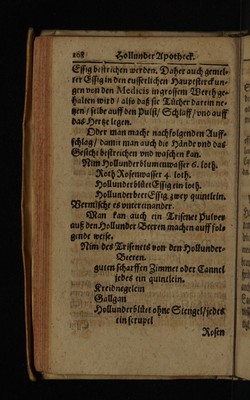 108 Hollunder Apotheck.
Essig bestrichen werden. Daher auch gemel-
ter Essig in den eusserlichen Hauptsterckun-
gen von den Medicis in grossem Werth ge-
halten wird / also daß sie Tücher darein ne-
tzen / selbe auff den Pulß / Schlaff / vnd auff
das Hertz legen.
Oder man mache nachfolgenden Auff-
schlag / damit man auch die Händ vnd das
Gesicht bestreichen vnd waschen kan.
Nim Hollunderblumenwasser 6. loth.
Roth Rosenwasser 4. loth.
Hollunderblüet Essig ein loth.
Hollunderbeer Essig zwey quintlein.
Vermische es vntereinander.
Man kan auch ein Trisenet Pulver
auß den Hollunder Beeren machen auff fol-
gende weise.
Nim des Trisenets von den Hollunder-
Beeren.
guten scharffen Zimmet oder Cannel
jedes ein quintlein.
Kreidnegelein
Gallgan
Hollunderblüet ohne Stengel / jedes
ein scrupel
Rosen